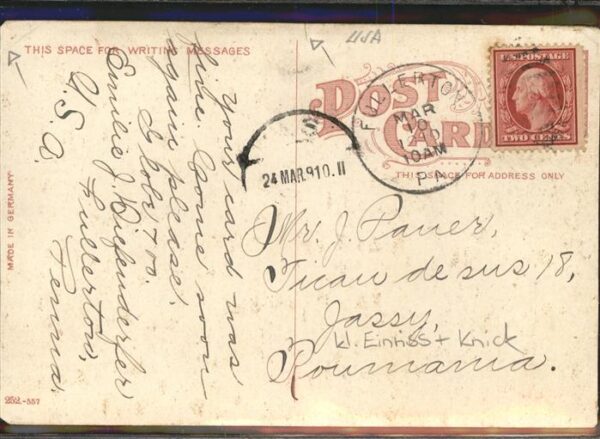 THIS SPACE FOR WRITING MESSAGES
USA
POST
CARD
THIS SPACE FOR ADDRESS ONLY
U.S. POSTAGE
TWO CENTS
FULLERTON
MAR
10
10AM
PA
24 MAR.910.11
Your card was
fine. Come soon
again please.
Emilie J. Kiefenderfer
Fullerton,
Penna.
U.S.A.
Mr. J. Pauer,
Ticau de sus 18,
Jassy,
kl. Einriss + Knick
Roumania.
MADE IN GERMANY
252.-557